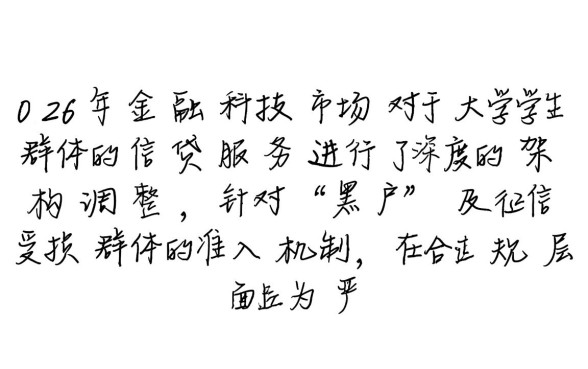 026年金融科技市场对于大学学生
群体的信贷服务进行了深度的架
构调整，针对“黑户”及征信
受损群体的准入机制，在合法规层
面丘为严